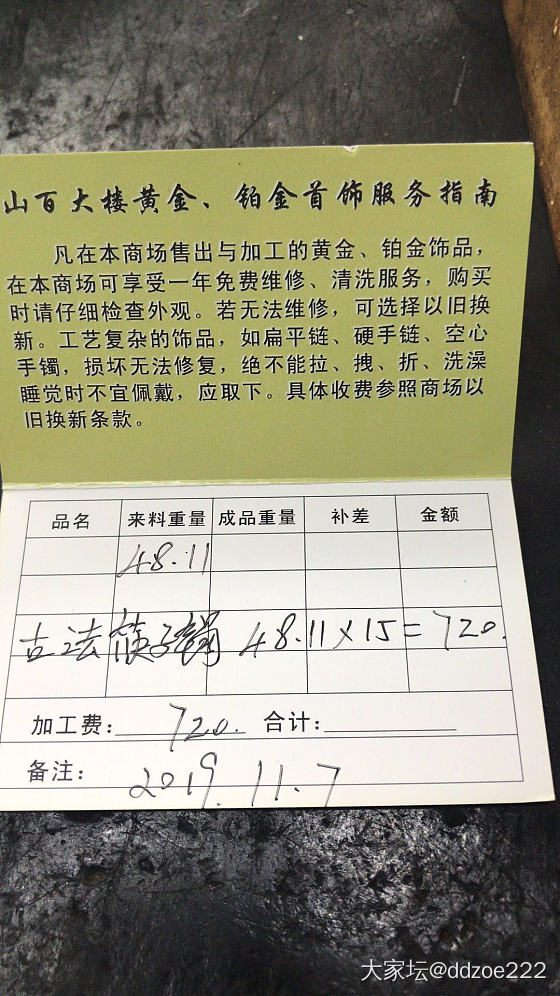 山百大楼黄金、铂金首饰服务指南
凡在本商场售出与加工的黄金、铂金饰品，
在本商场可享受一年免费维修、清洗服务，购买
时请仔细检查外观。若无法维修，可选择以旧换
新。工艺复杂的饰品，如扁平链、硬手链、空心
手镯，损坏无法修复，绝不能拉、拽、折、洗澡
睡觉时不宜佩戴，应取下。具体收费参照商场以
旧换新条款。
品名 来料重量 成品重量 补差 金额
48.11
古法筷子镯 48.11×15=720.
加工费：720. 合计：
备注：2019.11.7
大家坛@ddzoe222